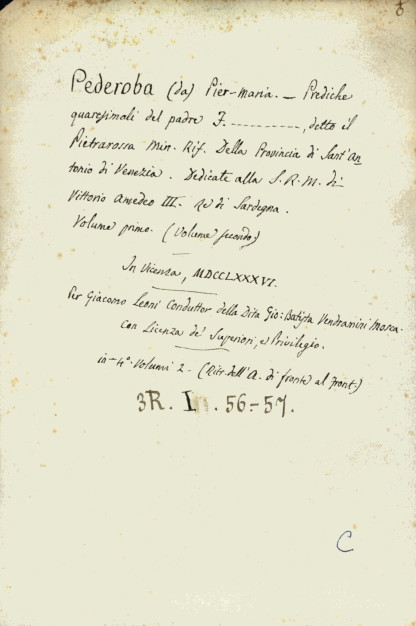 6
Pederoba (da) Pier-maria. — Prediche
quaresimali del padre F. - - - - - - - - - -, detto il
Pietrarossa Min. Rif. Della Provincia di Sant'An-
tonio di Venezia. Dedicate alla S.R.M. di
Vittorio Amedeo III. Re di Sardegna.
Volume primo. (Volume secondo)
In Vicenza, MDCCLXXXVI.
Per Giacomo Leoni Conduttor della Dita Gio: Batista Vendramini Mosca.
con Licenza de' Superiori, e Privilegio.
in-4° Volumi 2 - (Ritr. dell'A. di fronte al front.)
3R. In. 56-57.
C